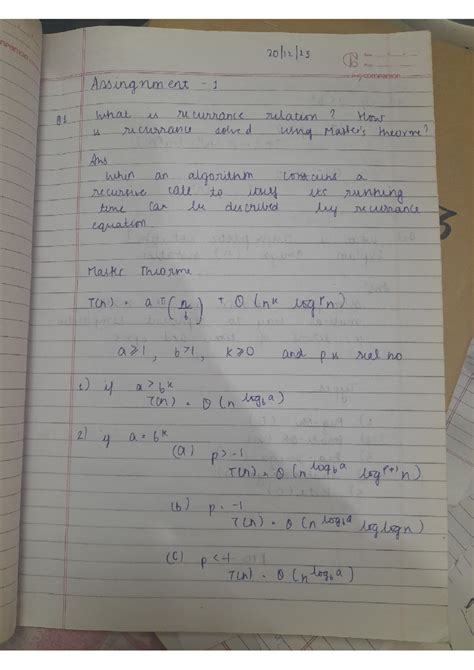 20/12/23
Assingnment - 1
Q1 What is recurrance relation? How
is recurrance solved using Master's theorme?
Ans
When an algorithm contains a
recursive call to itself its running
time can be described by recurrance
equation
Master Theorme
T(n) = a T(n/b) + θ(n^k log^p n)
a≥1, b>1, k≥0 and p is real no
1) if a > b^k
T(n) = θ(n^log_b a)
2) if a = b^k
(a) p > -1
T(n) = θ(n^log_b a log^p+1 n)
(b) p = -1
T(n) = θ(n^log_b a log log n)
(c) p < -1
T(n) = θ(n^log_b a)